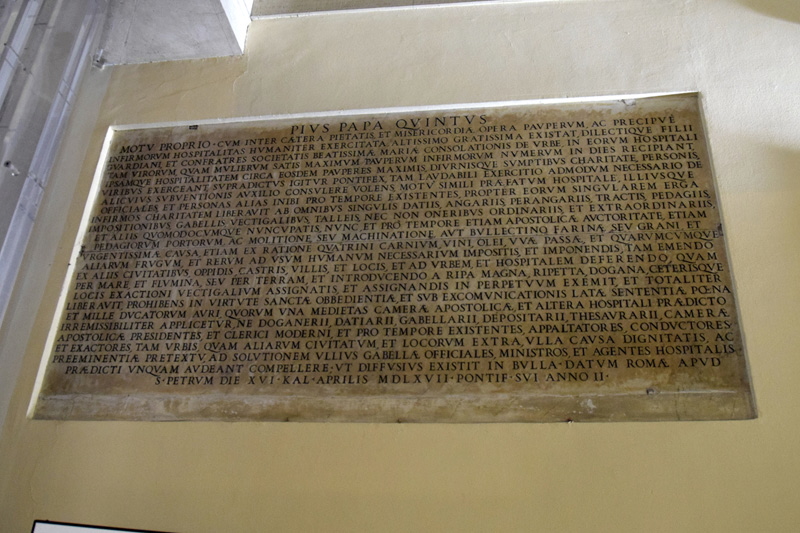 PIVS PAPA QVINTVS
MOTV PROPRIO · CVM INTER CÆTERA PIETATIS, ET MISERICORDIÆ OPERA PAVPERVM, AC PRECIPVÈ
INFIRMORVM HOSPITALITAS HVMANITER EXERCITATA ALTISSIMO GRATISSIMA EXISTAT, DILECTIQVE FILII
GVARDIANI, ET CONFRATRES SOCIETATIS BEATISSIMÆ MARIÆ CONSOLATIONIS DE VRBE, IN EORVM HOSPITALI
TAM VIRORVM, QVAM MVLIERVM SATIS MAXIMVM PAVPERVM INFIRMORVM NVMERVM IN DIES RECIPIANT,
IPSAMQVE HOSPITALITATEM CIRCA EOSDEM PAVPERES MAXIMIS, DIVRNISQVE SVMPTIBVS CHARITATE, PERSONIS,
VIRIBVS EXERCEANT, SVPRADICTVS IGITVR PONTIFEX, TAM LAVDABILI EXERCITIO ADMODVM NECESSARIO DE
ALICVIVS SVBVENTIONIS AVXILIO CONSVLERE VOLENS, MOTV SIMILI PRÆFATVM HOSPITALE, ILLIVSQVE
OFFICIALES, ET PERSONAS ALIAS INIBI PRO TEMPORE EXISTENTES, PROPTER EORVM SINGVLAREM ERGA
INFIRMOS CHARITATEM LIBERAVIT AB OMNIBVS SINGVLIS DATIIS, ANGARIIS, PERANGARIIS, TRACTIS, PEDAGIIS,
IMPOSITIONIBVS GABELLIS, VECTIGALIBVS, TALLEIS, NEC NON ONERIBVS ORDINARIIS, ET EXTRAORDINARIIS,
ET ALIIS QVOMODOCVMQVE NVNCVPATIS, NVNC, ET PRO TEMPORE ETIAM APOSTOLICÆ AVCTORITATE, ETIAM
PEDAGIORVM PORTORVM, AC MOLITIONE, SEV MACHINATIONE, AVT BVLLECTINO FARINÆ, SEV GRANI ET
VRGENTISSIMÆ CAVSA, ETIAM EX RATIONE QVATRINI CARNIVM, VINI, OLEI, VVÆ PASSÆ, ET QVARVMCVMQVE
ALIARVM FRVGVM, ET RERVM AD VSVM HVMANVM NECESSARIVM IMPOSITIS, ET IMPONENDIS, TAM EMENDO
EX ALIIS CIVITATIBVS OPPIDIS, CASTRIS, VILLIS, ET LOCIS, ET AD VRBEM, ET HOSPITALEM DEFERENDO, QVAM
PER MARE, ET FLVMINA, SEV PER TERRAM, ET INTRODVCENDO A RIPA MAGNA, RIPETTA, DOGANA, CETERISQVE
LOCIS EXACTIONI VECTIGALIVM ASSIGNATIS, ET ASSIGNANDIS IN PERPETVVM EXEMIT, ET TOTALITER
LIBERAVIT, PROHIBENS IN VIRTVTE SANCTÆ OBBEDIENTIÆ, ET SVB EXCOMVNICATIONIS LATÆ SENTENTIÆ PŒNA
ET MILLE DVCATORVM AVRI, QVORVM VNA MEDIETAS CAMERÆ APOSTOLICÆ, ET ALTERA HOSPITALI PRÆDICTO
IRREMISSIBILITER APPLICETVR, NE DOGANERII, DATIARII, GABELLARII, DEPOSITARII, THESAVRARII, CAMERÆ
APOSTOLICÆ PRESIDENTES, ET CLERICI MODERNI, ET PRO TEMPORE EXISTENTES, APPALTATORES, CONDVCTORES
ET EXACTORES, TAM VRBIS, QVAM ALIARVM CIVITATVM, ET LOCORVM EXTRA, VLLA CAVSA DIGNITATIS, AC
PREEMINENTIÆ PRETEXTV, AD SOLVTIONEM VLLIVS GABELLÆ OFFICIALES, MINISTROS, ET AGENTES HOSPITALIS
PRÆDICTI VNQVAM AVDEANT COMPELLERE · VT DIFFVSIVS EXISTIT IN BVLLA · DATVM ROMÆ APVD
S · PETRVM DIE XVI · KAL · APRILIS MDLXVII · PONTIF · SVI ANNO II ·